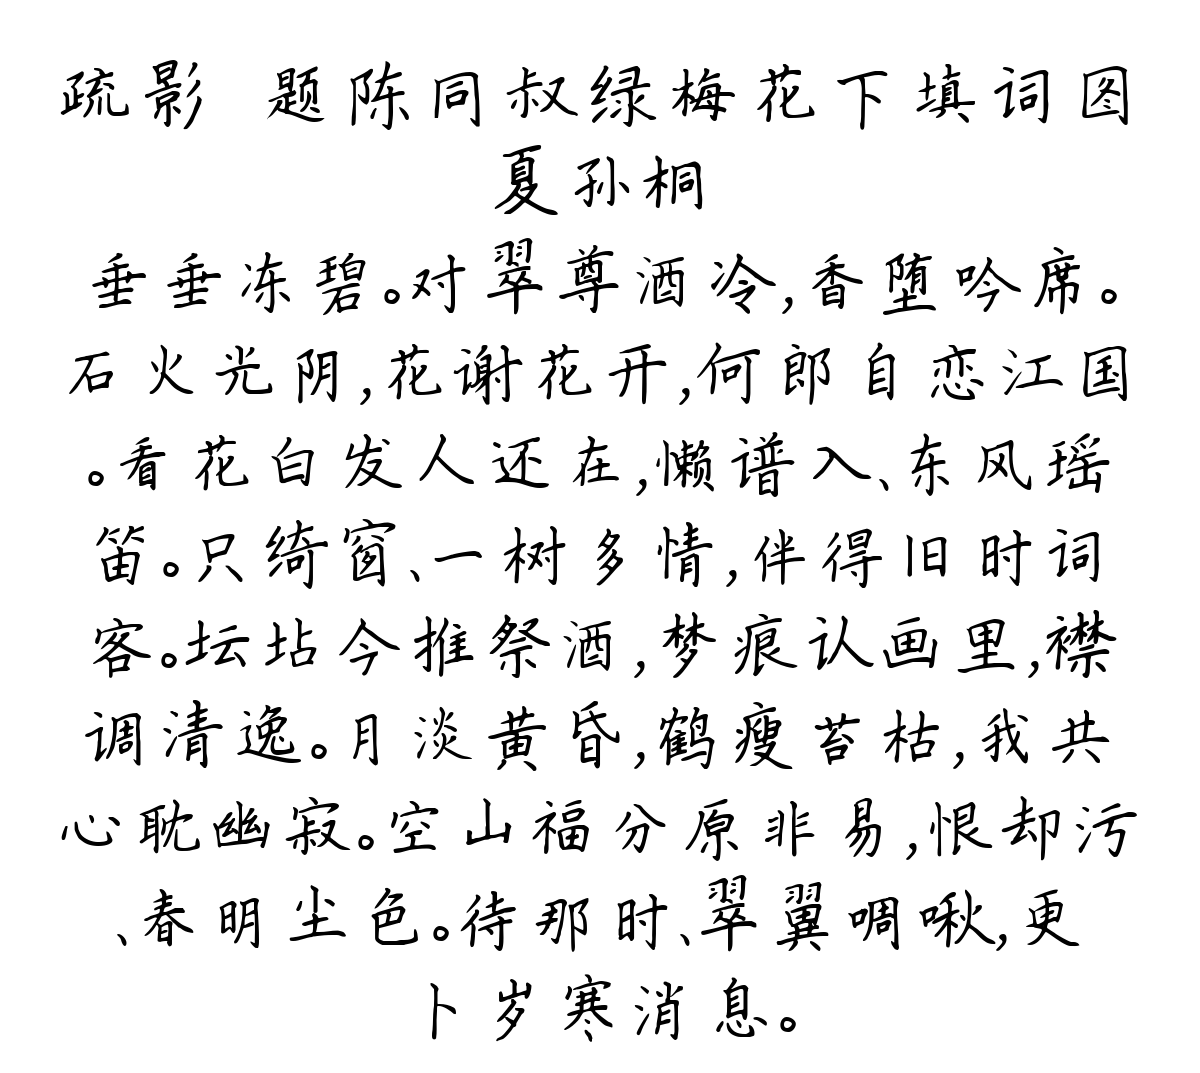 疏影 题陈同叔绿梅花下填词图
夏孙桐
垂垂冻碧。对翠尊酒冷,香堕吟席。
石火光阴,花谢花开,何郎自恋江国
。看花白发人还在,懒谱入、东风瑶
笛。只绮窗、一树多情,伴得旧时词
客。坛坫今推祭酒,梦痕认画里,襟
调清逸。月淡黄昏,鹤瘦苔枯,我共
心耽幽寂。空山福分原非易,恨却污
、春明尘色。待那时、翠翼啁啾,更
卜岁寒消息。